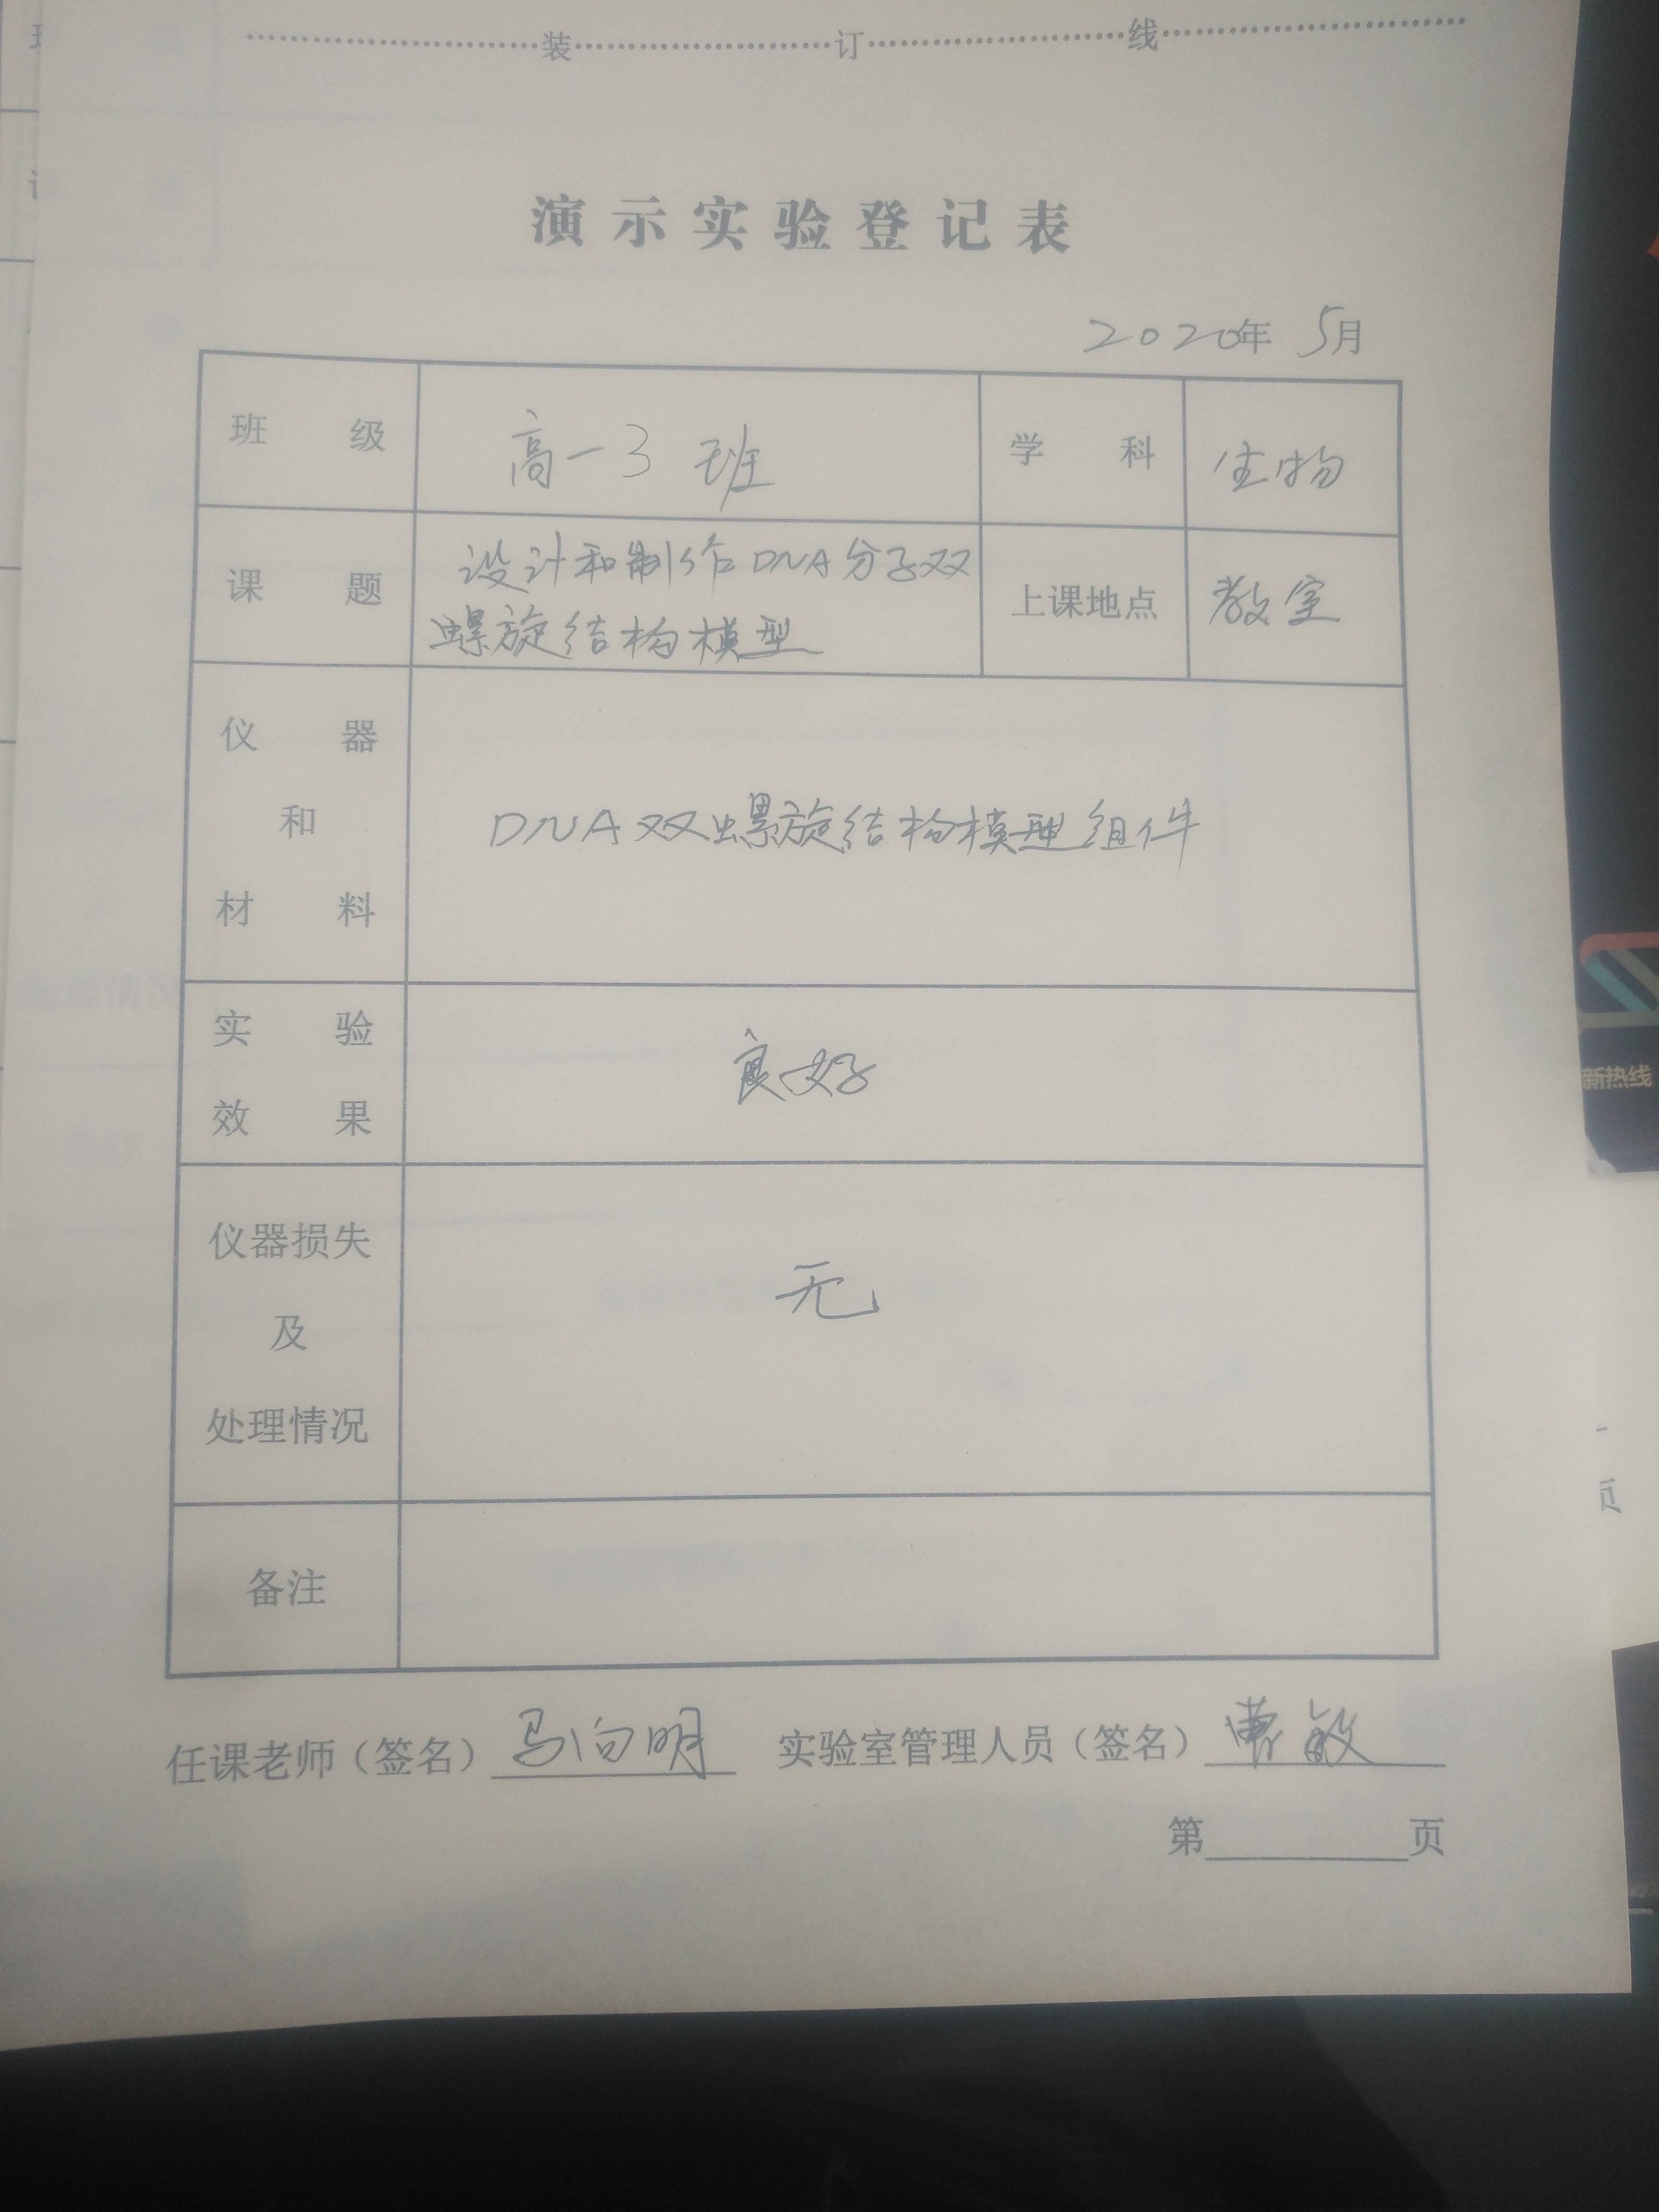 ………………………装………………………订………………………线………………………
演示实验登记表
2020年 5月
班 级 高一3 班 学 科 生物
课 题 设计和制作DNA分子双螺旋结构模型 上课地点 教室
仪 器
和 DNA双螺旋结构模型组件
材 料
实 验
良好
效 果
仪器损失
无
及
处理情况
备注
任课老师（签名）马向明 实验室管理人员（签名）曹敏
第 页
新热线
处理情况
页